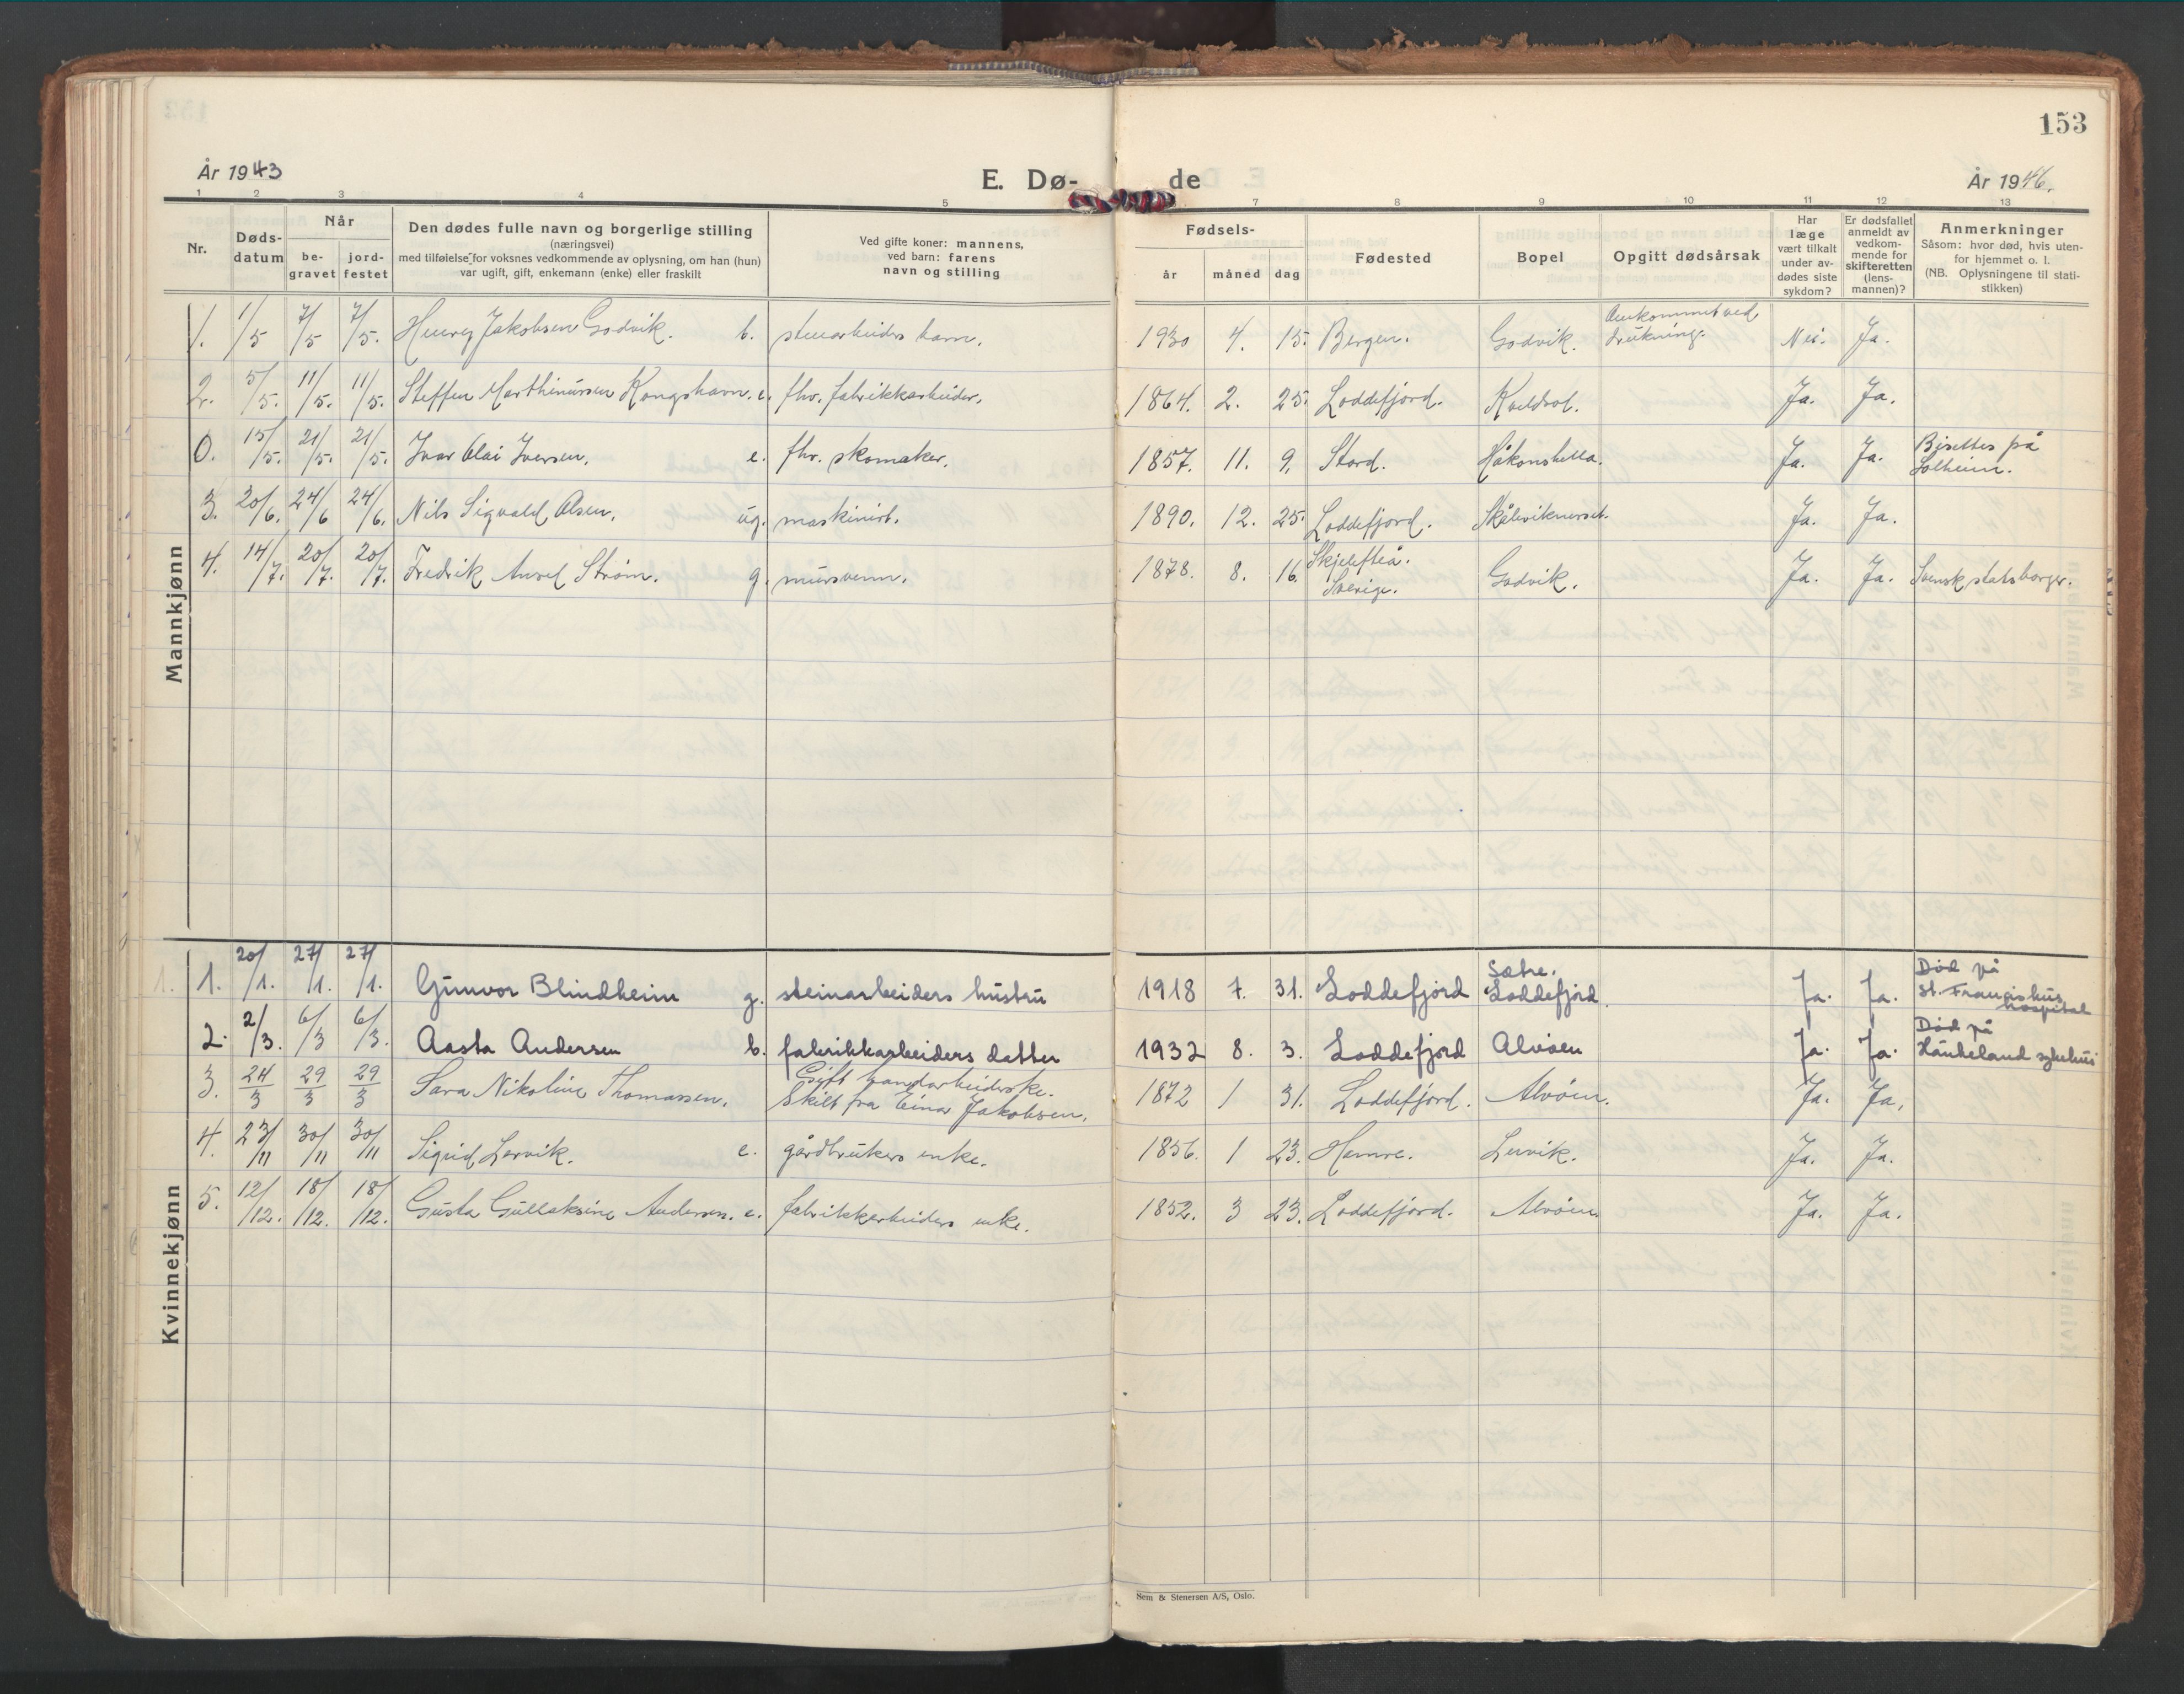 153
År 1943
E. Dø- de
År 1946.
1 2 3 4 5 7 8 9 10 11 12 13
Nr.
Døds-
datum
Når
be-
gravet
jord-
festet
Den dødes fulle navn og borgerlige stilling
(næringsvei)
med tilføielse for voksnes vedkommende av oplysning, om han (hun)
var ugift, gift, enkemann (enke) eller fraskilt
Ved gifte koner: mannens,
ved barn: farens
navn og stilling
Fødsels-
år måned dag
Fødested
Bopel
Opgitt dødsårsak
Har
læge
vært tilkalt
under av-
dødes siste
sykdom?
Er dødsfallet
anmeldt av
vedkom-
mende for
skifteretten
(lens-
mannen)?
Anmerkninger
Såsom: hvor død, hvis uten-
for hjemmet o. l.
(NB. Oplysningene til stati-
stikken)
Mannkjønn
1. 1/5 7/5 7/5. Henry Jakobsen Godvik. b. stenarbeiders barn. 1930 4. 15. Bergen. Godvik. Omkommet ved drukning. Nei. Ja.
2. 5/5. 11/5. 11/5. Steffen Marthinussen Kongshavn. e. fhv. fabrikkarbeider. 1864. 2. 25. Loddefjord. Ja. Ja.
0. 15/5. 21/5. 21/5. Ivar Olai Iversen. e. fhv. skomaker. 1857. 11. 9. Stord. Håkonshella. Ja. Ja. Bisettes på Solheim.
3. 20/6. 24/6 24/6. Nils Sigvald Olsen. ug. maskinist. 1890. 12. 25. Loddefjord. Ja. Ja.
4. 14/7. 20/7. 20/7. Fredrik Axsel Strøm. g. mursvenn. 1878. 8. 16. Skjelefteå. Sverige. Godvik. Ja. Ja. Svensk statsborger.
Kvinnekjønn
1. 20/1. 27/1. 27/1. Gunvor Blindheim g. steinarbeiders hustru 1918 7. 31. Loddefjord Sætre. Loddefjord. Ja. Ja. Død på St. Franciskus hospital
2. 2/3. 6/3 6/3. Aasta Andersen b. fabrikkarbeiders datter 1932 8. 3. Loddefjord Alvøen Ja. Ja. Død på Haukeland sykehus
3. 24/3 29/3 29/3 Sara Nikoline Thomassen. Gift handarbeiderske. Skilt fra Einar Jakobsen. 1872 1 31. Loddefjord. Alvøen. Ja. Ja.
4. 23/11 30/11 30/11 Sigrid Lervik. e. gårdbrukers enke. 1856. 1 23. Hamre. Lervik. Ja. Ja.
5. 12/12. 18/12. 18/12. Gusta Gullaksine Andersen. e. fabrikkarbeiders enke. 1852. 3 23. Loddefjord. Alvøen. Ja. Ja.
Sem & Stenersen A/S, Oslo.